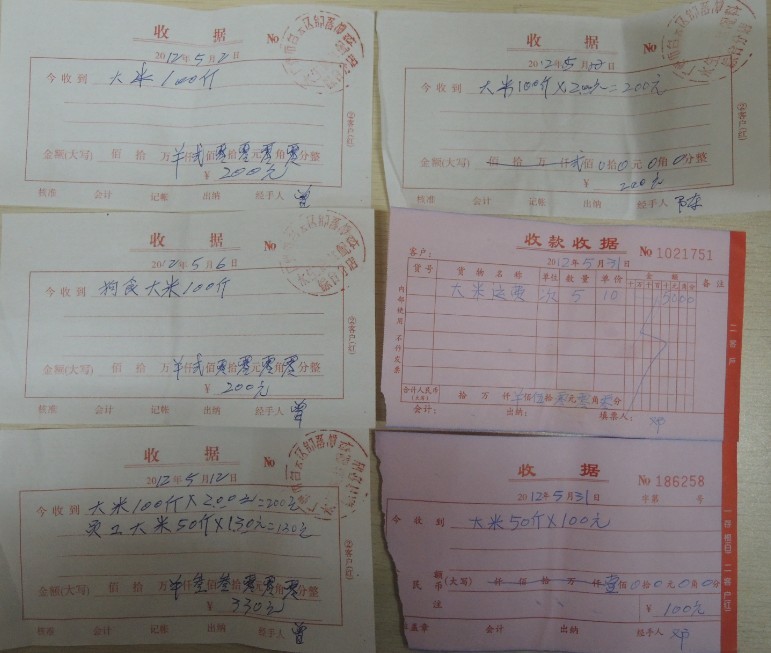 收 据 No
2012年5月2日
今收到 大米100斤
金额(大写) 佰 拾 万 仟贰佰零拾零元零角零分整
¥ 200元
核准 会计 记帐 出纳 经手人 曾
②客户(红)
收 据 No
2012年5月6日
今收到 狗食大米100斤
金额(大写) 佰 拾 万 仟贰佰零拾零元零角零分整
¥ 200元
核准 会计 记帐 出纳 经手人 曾
②客户(红)
收 据 No
2012年5月12日
今收到 大米100斤×2.00元=200元
大米50斤×130元=130元
金额(大写) 佰 拾 万 仟叁佰叁拾零元零角零分整
¥ 330元
核准 会计 记帐 出纳 经手人 曾
②客户(红)
收 据 No
2012年5月 日
今收到 大米100斤×2.00元=200元
金额(大写) 佰 拾 万 仟贰佰0拾0元0角0分整
¥ 200元
核准 会计 记帐 出纳 经手人
②客户(红)
收款收据 No 1021751
客户: 2012年5月31日
货号 货物名称 单位 数量 单价 金额 备注
十万千百十元角分
大米运费 次 5 10 5000
内部使用 不作发票
合计人民币(大写) 拾 万 仟 佰伍拾零元零角零分
会计: 出纳: 填票人: 邓
二 客户
收 据 No 186258
2012年5月31日 字第 号
今收到 大米50斤×100元
民币(大写) 仟 佰 拾 万 仟壹佰0拾0元0角0分
¥ 100元
注
盖章 会计 出纳 经手人 邓
一存根(白) 二客户(红)